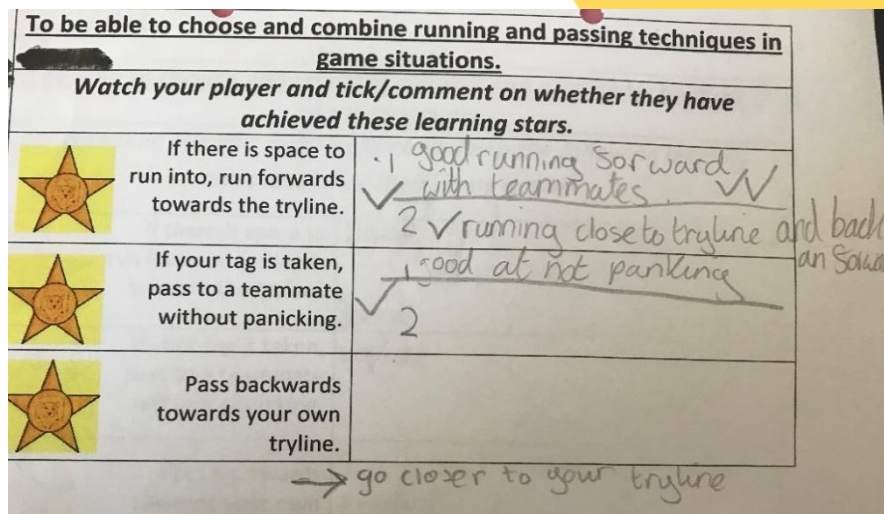 To be able to choose and combine running and passing techniques in
game situations.
Watch your player and tick/comment on whether they have
achieved these learning stars.
If there is space to
run into, run forwards
towards the tryline.
.1 good running Sorward
✓ with teammates. ✓✓
2 ✓ running close to tryline and back
an
If your tag is taken,
pass to a teammate
without panicking.
1 good at not panking
✓
2
Pass backwards
towards your own
tryline.
→ go closer to your tryline